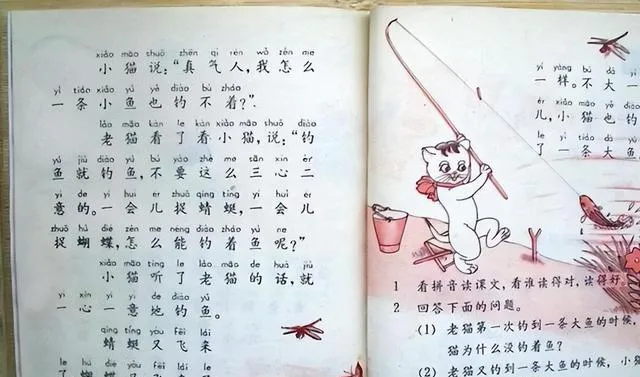 xiǎo māo shuō zhēn qì rén wǒ zěn me
小猫说:“真气人,我怎么
yì tiáo xiǎo yú yě diào bù zháo
一条小鱼也钓不着?”.
lǎo māo kàn le kàn xiǎo māo shuō diào
老猫看了看小猫,说:“钓
yú jiù diào yú bú yào zhè me sān xīn èr
鱼就钓鱼,不要这么三心二
yì de yí huì ér zhuō qīng tíng yí huì ér
意的。一会儿捉蜻蜓,一会儿
zhuō hú dié zěn me néng diào zháo yú ne
捉蝴蝶,怎么能钓着鱼呢?”
xiǎo māo tīng le lǎo māo de huà jiù
小猫听了老猫的话,就
yì xīn yí yì de diào yú
一心一意地钓鱼。
qīng tíng yòu fēi lái
蜻蜓又飞来
le hú dié yòu fēi lái
yí yàng bú dà yì
一样。不大一
ér xiǎo māo yě diào
儿,小猫也钓
le yì tiáo dà yú
了一条大鱼
1 看拼音读课文,看谁读得对,读得好。
2 回答下面的问题。
(1) 老猫第一次钓到一条大鱼的时候,
猫为什么没钓着鱼?
(2) 老猫又钓到一条大鱼的时候,小猫